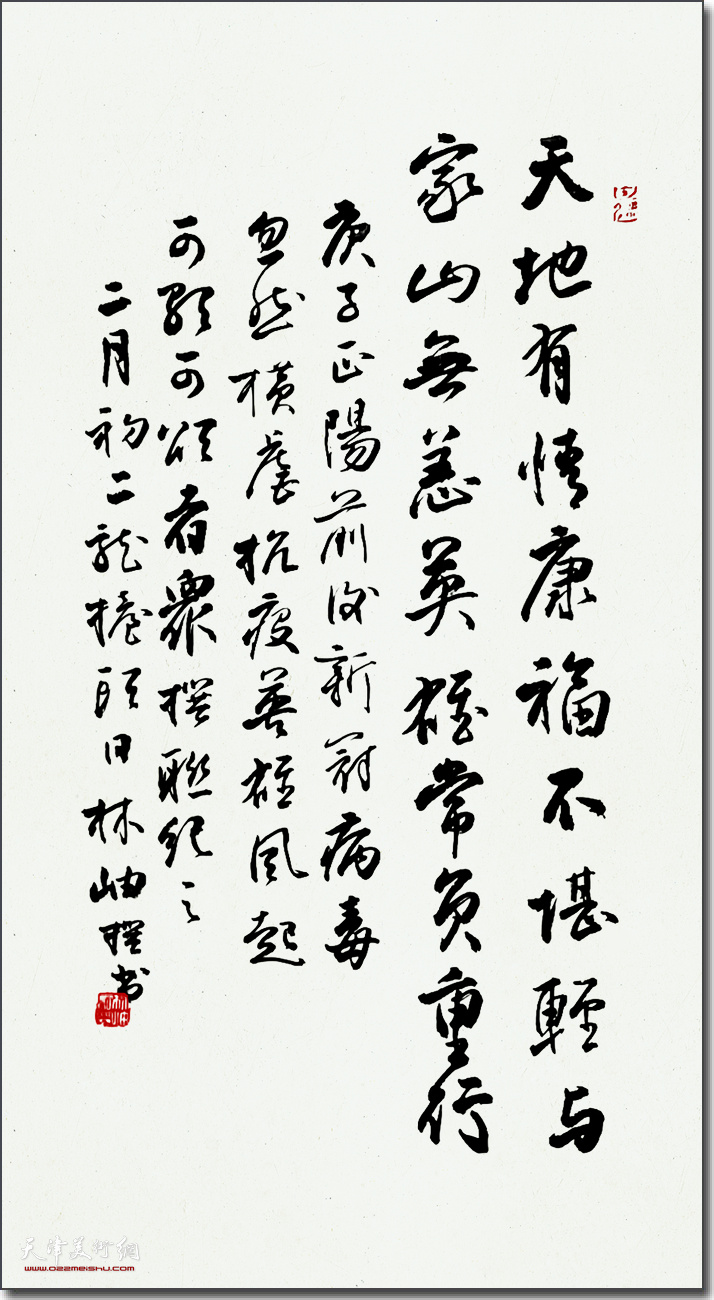 天地有情康福不堪輕与
家山無恙英雄常负重行
庚子正陽前後新冠病毒
忽然横虐抗疫英雄风起
可歌可颂者眾撰聯紀之
二月初二龍抬頭日林岫撰书
天津美術網
www.022meishu.com